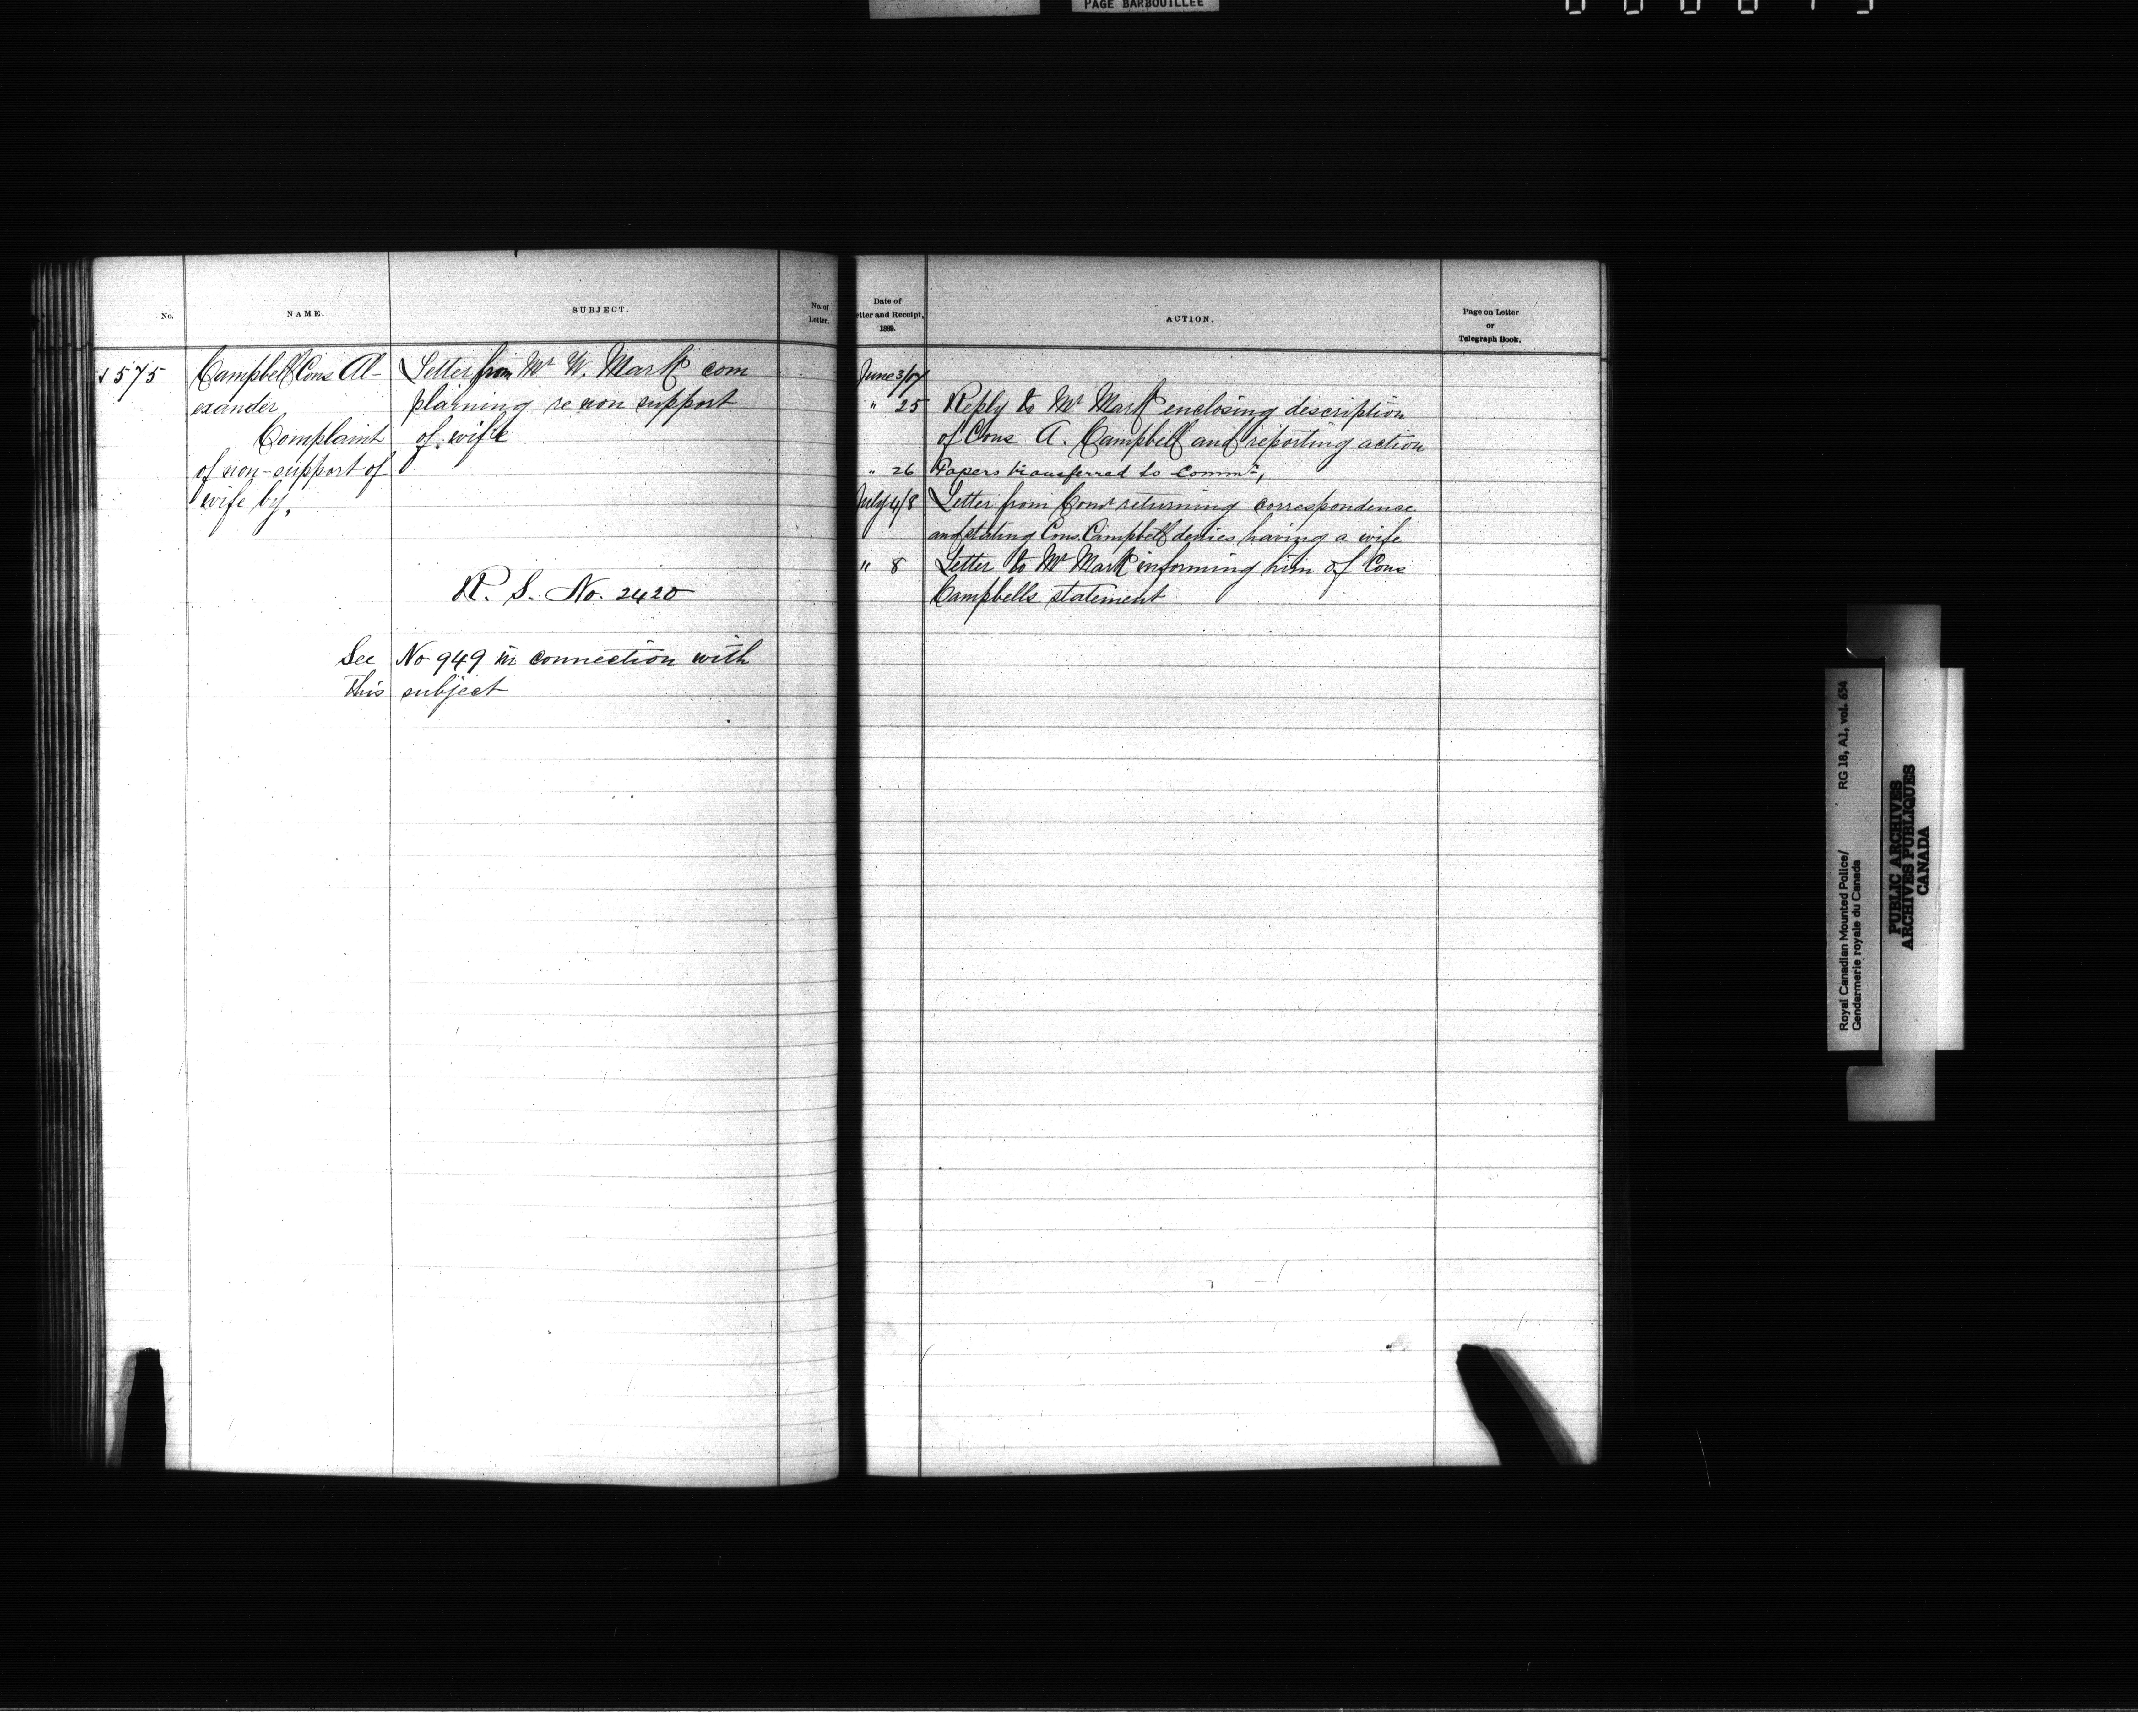 PAGE BARBOUILLÉE
No.
NAME.
SUBJECT.
No. of
Letter.
1575
Campbell Cons Al-
exander
Complaint
of non-support of
wife by,
Letter from Mr W. Mark com
plaining re non support
of wife
R. S. No. 2420
See No 949 in connection with
this subject
Date of
etter and Receipt,
1889.
ACTION.
Page on Letter
or
Telegraph Book.
June 3/07
" 25 Reply to Mr Mark enclosing description
of Cons A. Campbell and reporting action
" 26 Papers transferred to Commr,
July 4/8 Letter from Comr returning correspondence
and stating Cons. Campbell denies having a wife
" 8 Letter to Mr Mark informing him of Cons
Campbells statement
Royal Canadian Mounted Police/ RG 18, A1, vol. 654
Gendarmerie royale du Canada
PUBLIC ARCHIVES
ARCHIVES PUBLIQUES
CANADA